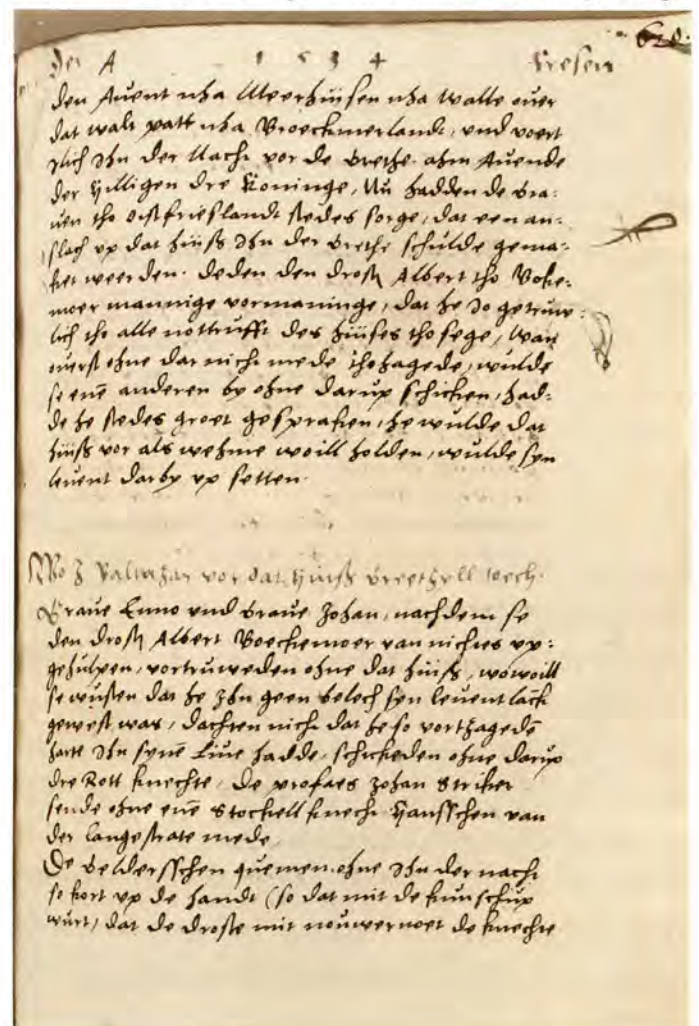 620.
Der A 1534 Fresen
den Avent nha Meerhüsen nha Walle over
dat walt patt nha Broeckmerlandt, und voert
ylich Ihn der Nacht vor de Grethe ahm Avende
der Hilligen dre Koninge, Nu hadden de Gra:
ven tho Ostfrieslandt stedes sorge, dat een an:
slach up dat hüiss Ihn der Grethe schulde gema:
ket weerden. Deden den drost Albert tho Boke:
moer mannige vormaninge, dat he Jo getruw:
lich tho alle nottrufft des hüises tho sege, Wan
overst ohne dar nicht mede thohagede, wulde
se enē anderen by ohne darup schicken, had:
de he stedes groet gespraken, he wulde dat
hüiss vor als wehme woill holden, wulde syn
levent darby up setten.
Wo J Baltazar vor dat Hüiss Greethyll toech.
Grave Enno und Grave Johan, nachdem se
den drost Albert Boeckemoer van nichtes up:
gehulpen, vortruweden ohne dat hüiss, wowoill
se wusten dat he Jhn geen belech syn levent lack
gewest was, dachten nicht dat he so vorthagedē
harte Ihn synē Live hadde, schickeden ohne darup
dre Rott knechte, De profaes Johan Striker
sende ohne enē Stockell knecht Hansschen van
der Langestrate mede
De Geldersschen quemen ohne Ihn der nacht
so kort up de handt (so dat mit de kunschup
wurt, dat de droste mit nouwernoet de knechte